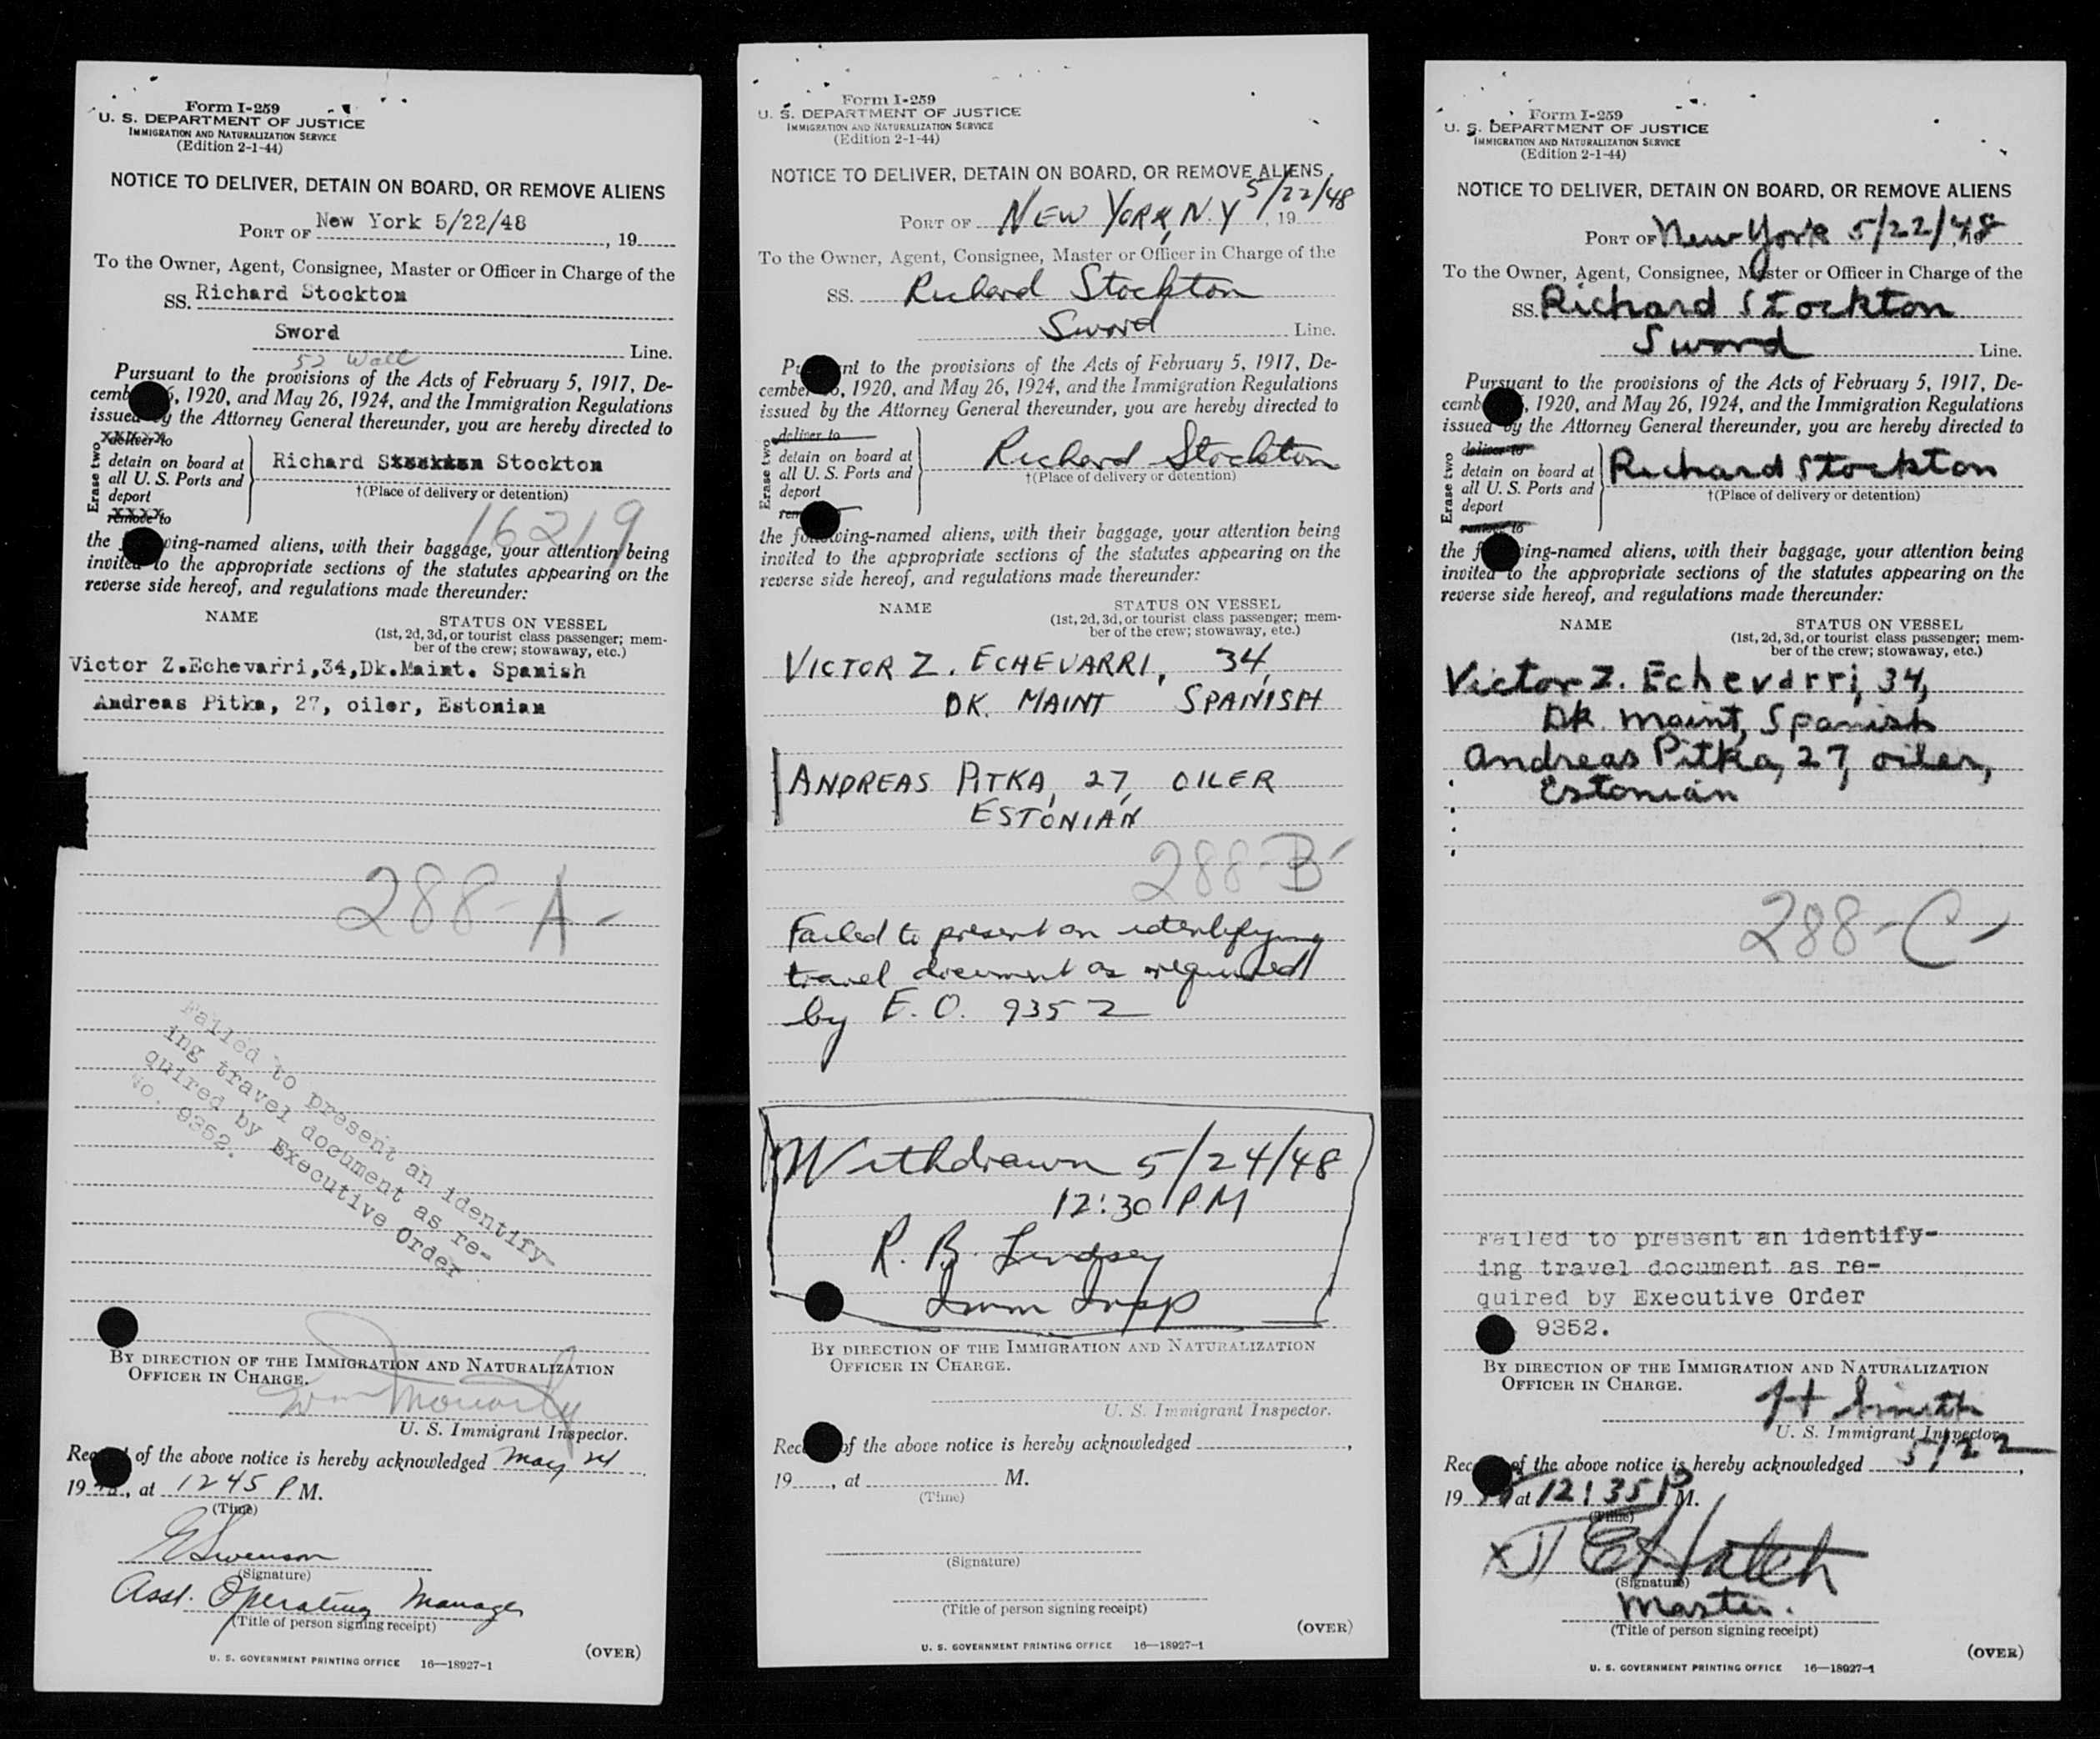 Form I-259
U. S. DEPARTMENT OF JUSTICE
IMMIGRATION AND NATURALIZATION SERVICE
(Edition 2-1-44)
NOTICE TO DELIVER, DETAIN ON BOARD, OR REMOVE ALIENS
PORT OF New York 5/22/48, 19
To the Owner, Agent, Consignee, Master or Officer in Charge of the
SS. Richard Stockton
Sword Line.
52 Wall
Pursuant to the provisions of the Acts of February 5, 1917, De-
cemb , 1920, and May 26, 1924, and the Immigration Regulations
issued by the Attorney General thereunder, you are hereby directed to
Erase two
deliver to
detain on board at
all U. S. Ports and
deport
remove to
Richard Stockton Stockton
†(Place of delivery or detention)
16219
the wing-named aliens, with their baggage, your attention being
invited to the appropriate sections of the statutes appearing on the
reverse side hereof, and regulations made thereunder:
NAME STATUS ON VESSEL
(1st, 2d, 3d, or tourist class passenger; mem-
ber of the crew; stowaway, etc.)
Victor Z.Echevarri,34,Dk.Maint. Spanish
Andreas Pitka, 27, oiler, Estonian
288-A-
Failed to present an identify-
ing travel document as re-
quired by Executive Order
No. 9352.
BY DIRECTION OF THE IMMIGRATION AND NATURALIZATION
OFFICER IN CHARGE.
Wm Moriarty
U. S. Immigrant Inspector.
Rec of the above notice is hereby acknowledged May 24,
19 , at 1245 P M.
(Time)
E Swenson
(Signature)
Asst. Operating Manager
(Title of person signing receipt)
(OVER)
U. S. GOVERNMENT PRINTING OFFICE 16—18927-1
Form I-259
U. S. DEPARTMENT OF JUSTICE
IMMIGRATION AND NATURALIZATION SERVICE
(Edition 2-1-44)
NOTICE TO DELIVER, DETAIN ON BOARD, OR REMOVE ALIENS
PORT OF NEW YORK, N.Y 5/22/48, 19
To the Owner, Agent, Consignee, Master or Officer in Charge of the
SS. Richard Stockton
Sword Line.
Pu nt to the provisions of the Acts of February 5, 1917, De-
cember , 1920, and May 26, 1924, and the Immigration Regulations
issued by the Attorney General thereunder, you are hereby directed to
Erase two
deliver to
detain on board at
all U. S. Ports and
deport
rem
Richard Stockton
†(Place of delivery or detention)
the following-named aliens, with their baggage, your attention being
invited to the appropriate sections of the statutes appearing on the
reverse side hereof, and regulations made thereunder:
NAME STATUS ON VESSEL
(1st, 2d, 3d, or tourist class passenger; mem-
ber of the crew; stowaway, etc.)
VICTOR Z. ECHEVARRI, 34,
DK. MAINT SPANISH
ANDREAS PITKA, 27, OILER
ESTONIAN
288-B-
Failed to present an identifying
travel document as required
by E. O. 9352
Withdrawn 5/24/48
12:30 P.M
R. B. Lindsey
Imm Insp
BY DIRECTION OF THE IMMIGRATION AND NATURALIZATION
OFFICER IN CHARGE.
U. S. Immigrant Inspector.
Rec of the above notice is hereby acknowledged ,
19 , at M.
(Time)
(Signature)
(Title of person signing receipt)
(OVER)
U. S. GOVERNMENT PRINTING OFFICE 16—18927-1
Form I-259
U. S. DEPARTMENT OF JUSTICE
IMMIGRATION AND NATURALIZATION SERVICE
(Edition 2-1-44)
NOTICE TO DELIVER, DETAIN ON BOARD, OR REMOVE ALIENS
PORT OF New York 5/22/48
To the Owner, Agent, Consignee, Master or Officer in Charge of the
SS. Richard Stockton
Sword Line.
Pursuant to the provisions of the Acts of February 5, 1917, De-
cemb , 1920, and May 26, 1924, and the Immigration Regulations
issued by the Attorney General thereunder, you are hereby directed to
Erase two
deliver to
detain on board at
all U. S. Ports and
deport
remove to
Richard Stockton
†(Place of delivery or detention)
the f wing-named aliens, with their baggage, your attention being
invited to the appropriate sections of the statutes appearing on the
reverse side hereof, and regulations made thereunder:
NAME STATUS ON VESSEL
(1st, 2d, 3d, or tourist class passenger; mem-
ber of the crew; stowaway, etc.)
Victor Z. Echevarri, 34,
Dk. Maint, Spanish
Andreas Pitka, 27, oiler,
Estonian
288-C-
Failed to present an identify-
ing travel document as re-
quired by Executive Order
9352.
BY DIRECTION OF THE IMMIGRATION AND NATURALIZATION
OFFICER IN CHARGE.
Smith
U. S. Immigrant Inspector.
Rec of the above notice is hereby acknowledged 5/22,
19 at 12:35 P M.
(Time)
Hatch
(Signature)
Master.
(Title of person signing receipt)
(OVER)
U. S. GOVERNMENT PRINTING OFFICE 16—18927-1